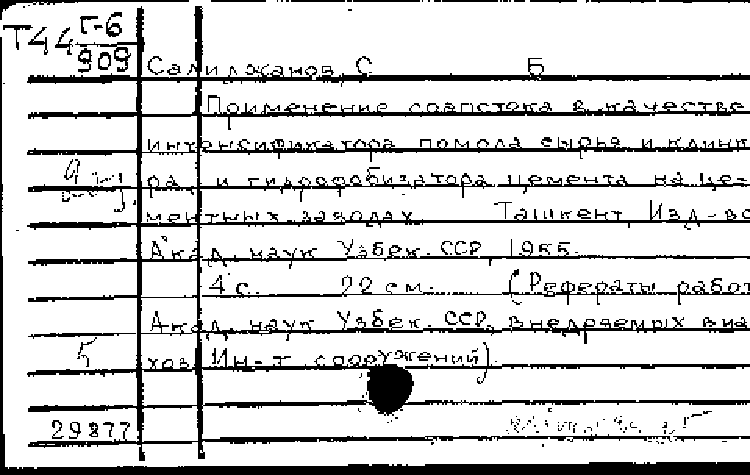 Т44 Г-6
909
Салиджанов, С Б
Применение соапстока в качестве
интенсификатора помола сырья и клинк
ра и гидрофобизатора цемента на це-
ментных заводах. Ташкент, Изд-во
Акад. наук Узбек. ССР, 1955.
4 с. 22 см. (Рефераты работ
Акад. наук Узбек. ССР, внедряемых в на
хоз. Ин-т сооружений).
5
29877